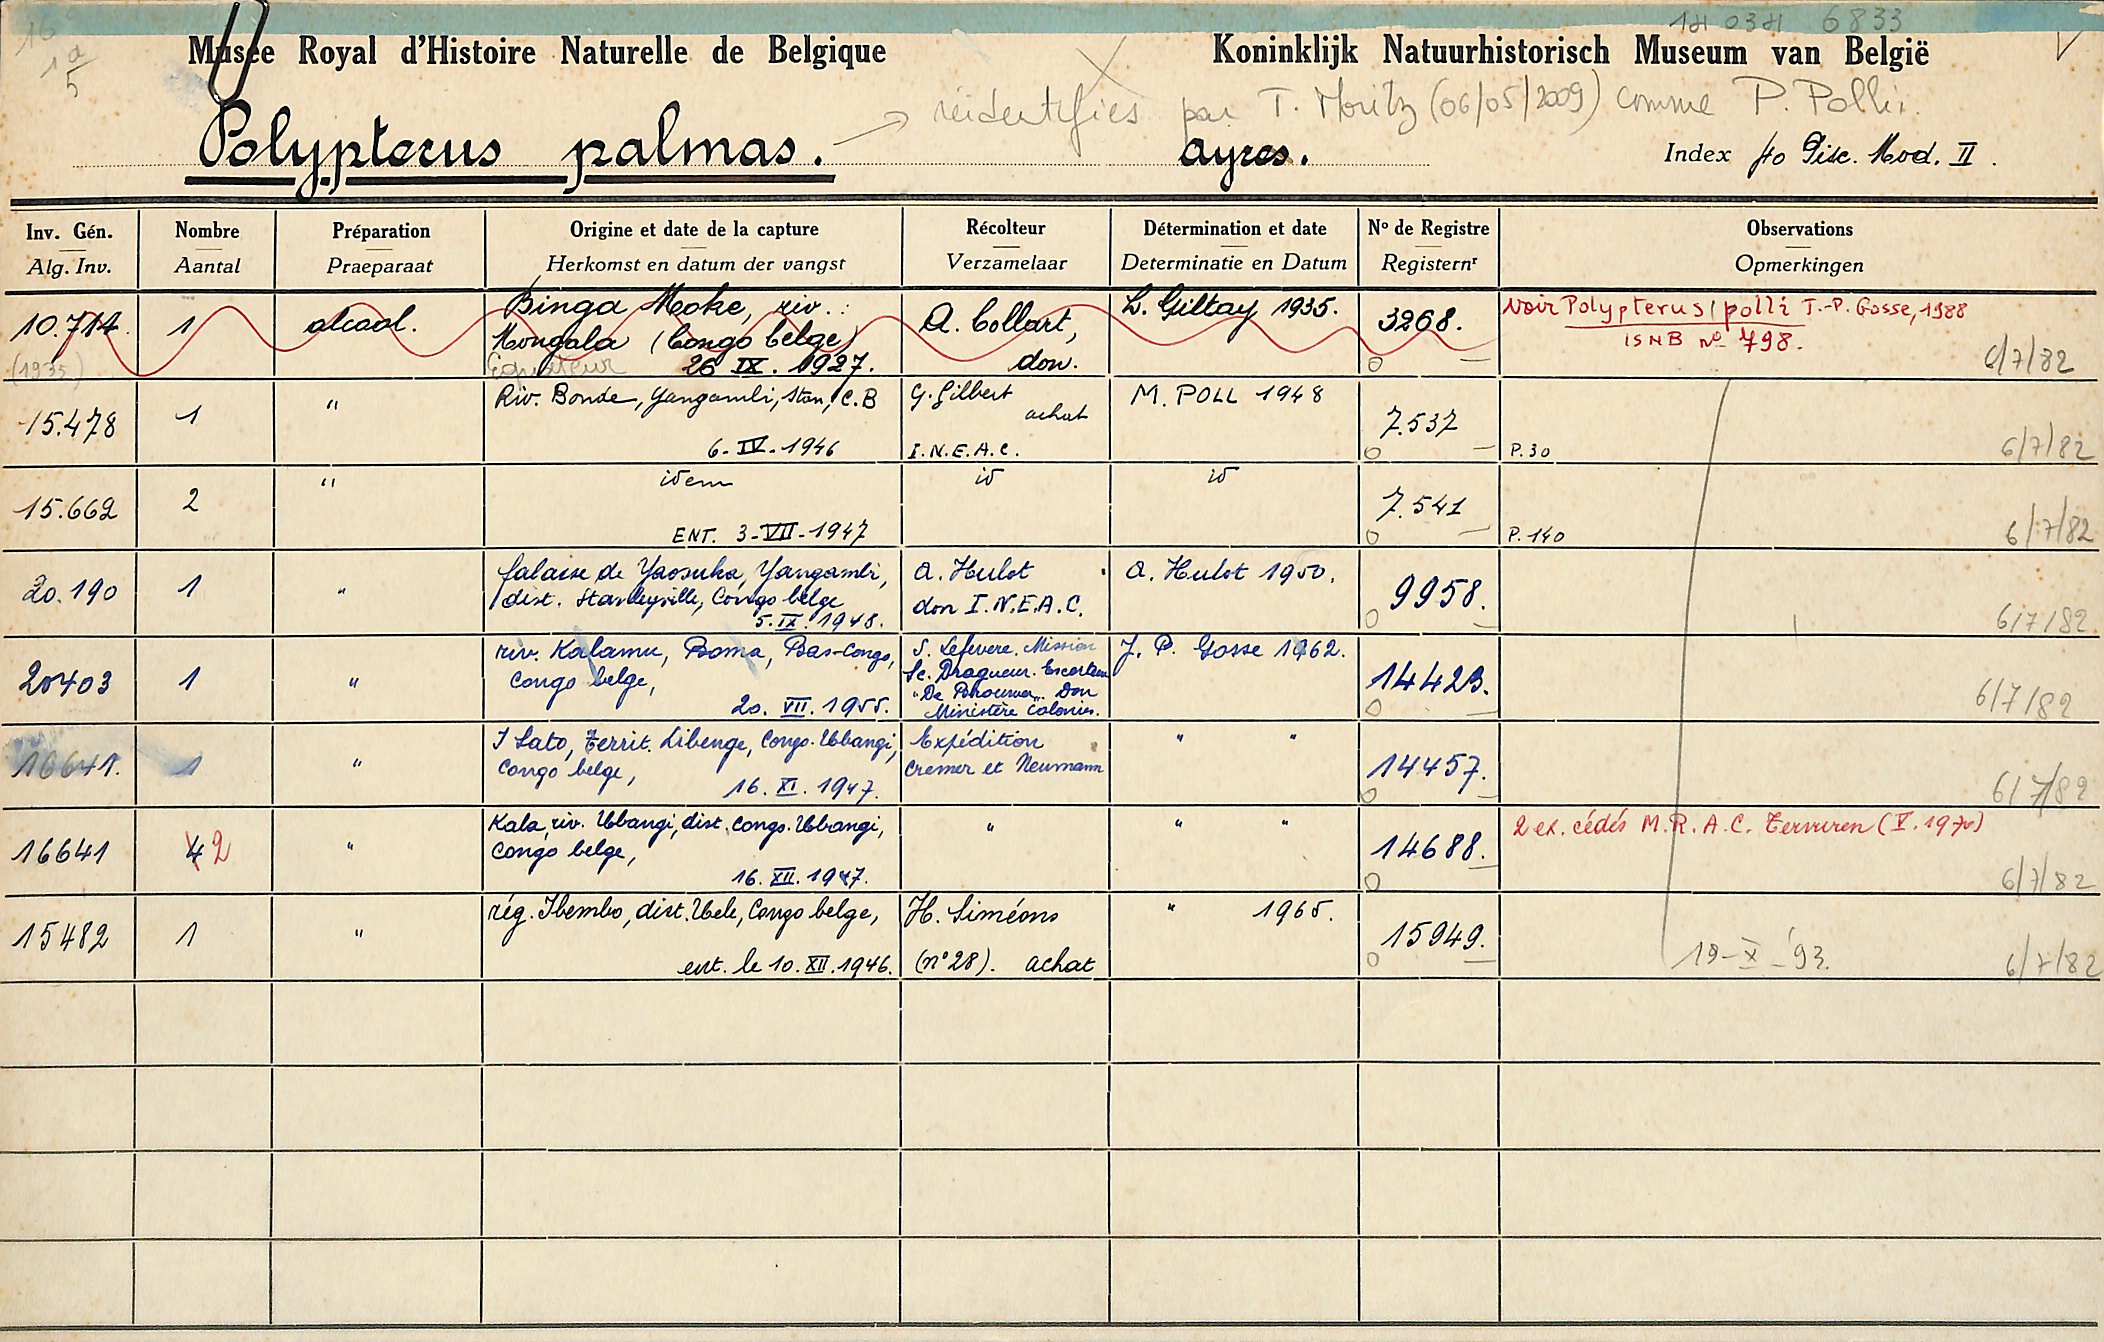 14 034 6833
16
1 a/5
Musée Royal d'Histoire Naturelle de Belgique Koninklijk Natuurhistorisch Museum van België
→ réidentifiés par T. Moritz (06/05/2009) comme P. Polli.
Polypterus palmas. ayres. Index to Pisc. Mod. II.
Inv. Gén. Nombre Préparation Origine et date de la capture Récolteur Détermination et date No de Registre Observations
Alg. Inv. Aantal Praeparaat Herkomst en datum der vangst Verzamelaar Determinatie en Datum Registernr Opmerkingen
10.714. 1 alcool. Binga Moke, riv. : A. Collart, L. Giltay 1935. 3268. Voir Polypterus polli J.-P. Gosse, 1988
(1935) Mongala (Congo belge) don. ISNB no 798.
Equateur 26 IX. 1927. 6/7/82
15.478 1 " Riv. Bonde, Yangambi, Stan, C.B G. Gilbert achat M. POLL 1948 7.537
6-IV-1946 I.N.E.A.C. P.30 6/7/82
15.662 2 " idem id id 7.541
ENT. 3-VII-1947 P.140 6/7/82
20.190 1 " falaise de Yaosuka, Yangambi, A. Hulot A. Hulot 1950. 9958.
dist. Stanleyville, Congo belge don I.N.E.A.C.
5.IX.1948. 6/7/82
20403 1 " riv. Kalamu, Boma, Bas-Congo, S. Lefevere. Mission J. P. Gosse 1962. 14423.
Congo belge, Sc. Dragueur. Escorteur
20. VII. 1955. "De Brouwer". Don
Ministère Colonies. 6/7/82
16641. 1 " I Lato, Territ. Libenge, Congo-Ubangi, Expédition " " 14457.
Congo belge, Cremer et Neumann
16. XI. 1947. 6/7/82
16641 4 2 " Kala, riv. Ubangi, dist. Congo-Ubangi, " " " 14688. 2 ex. cédés M.R.A.C. Tervuren (V.1970)
Congo belge,
16. XII. 1947. 6/7/82
15482 1 " rég. Ibembo, dist. Uele, Congo belge, H. Siméons " 1965. 15949.
ent. le 10. XII. 1946. (n° 28). achat 19-X-'93. 6/7/82